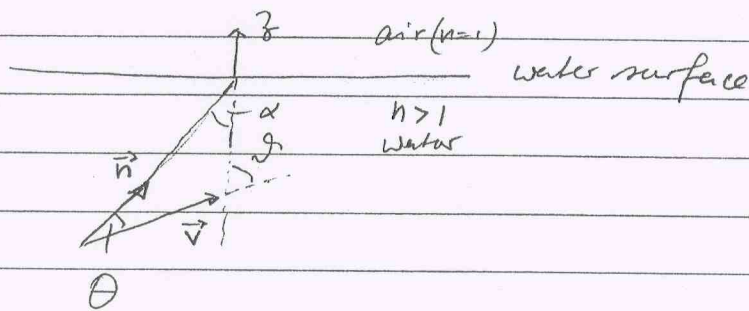 z air (n=1)
water surface
α n>1
ϑ water
n⃗
v⃗
θ